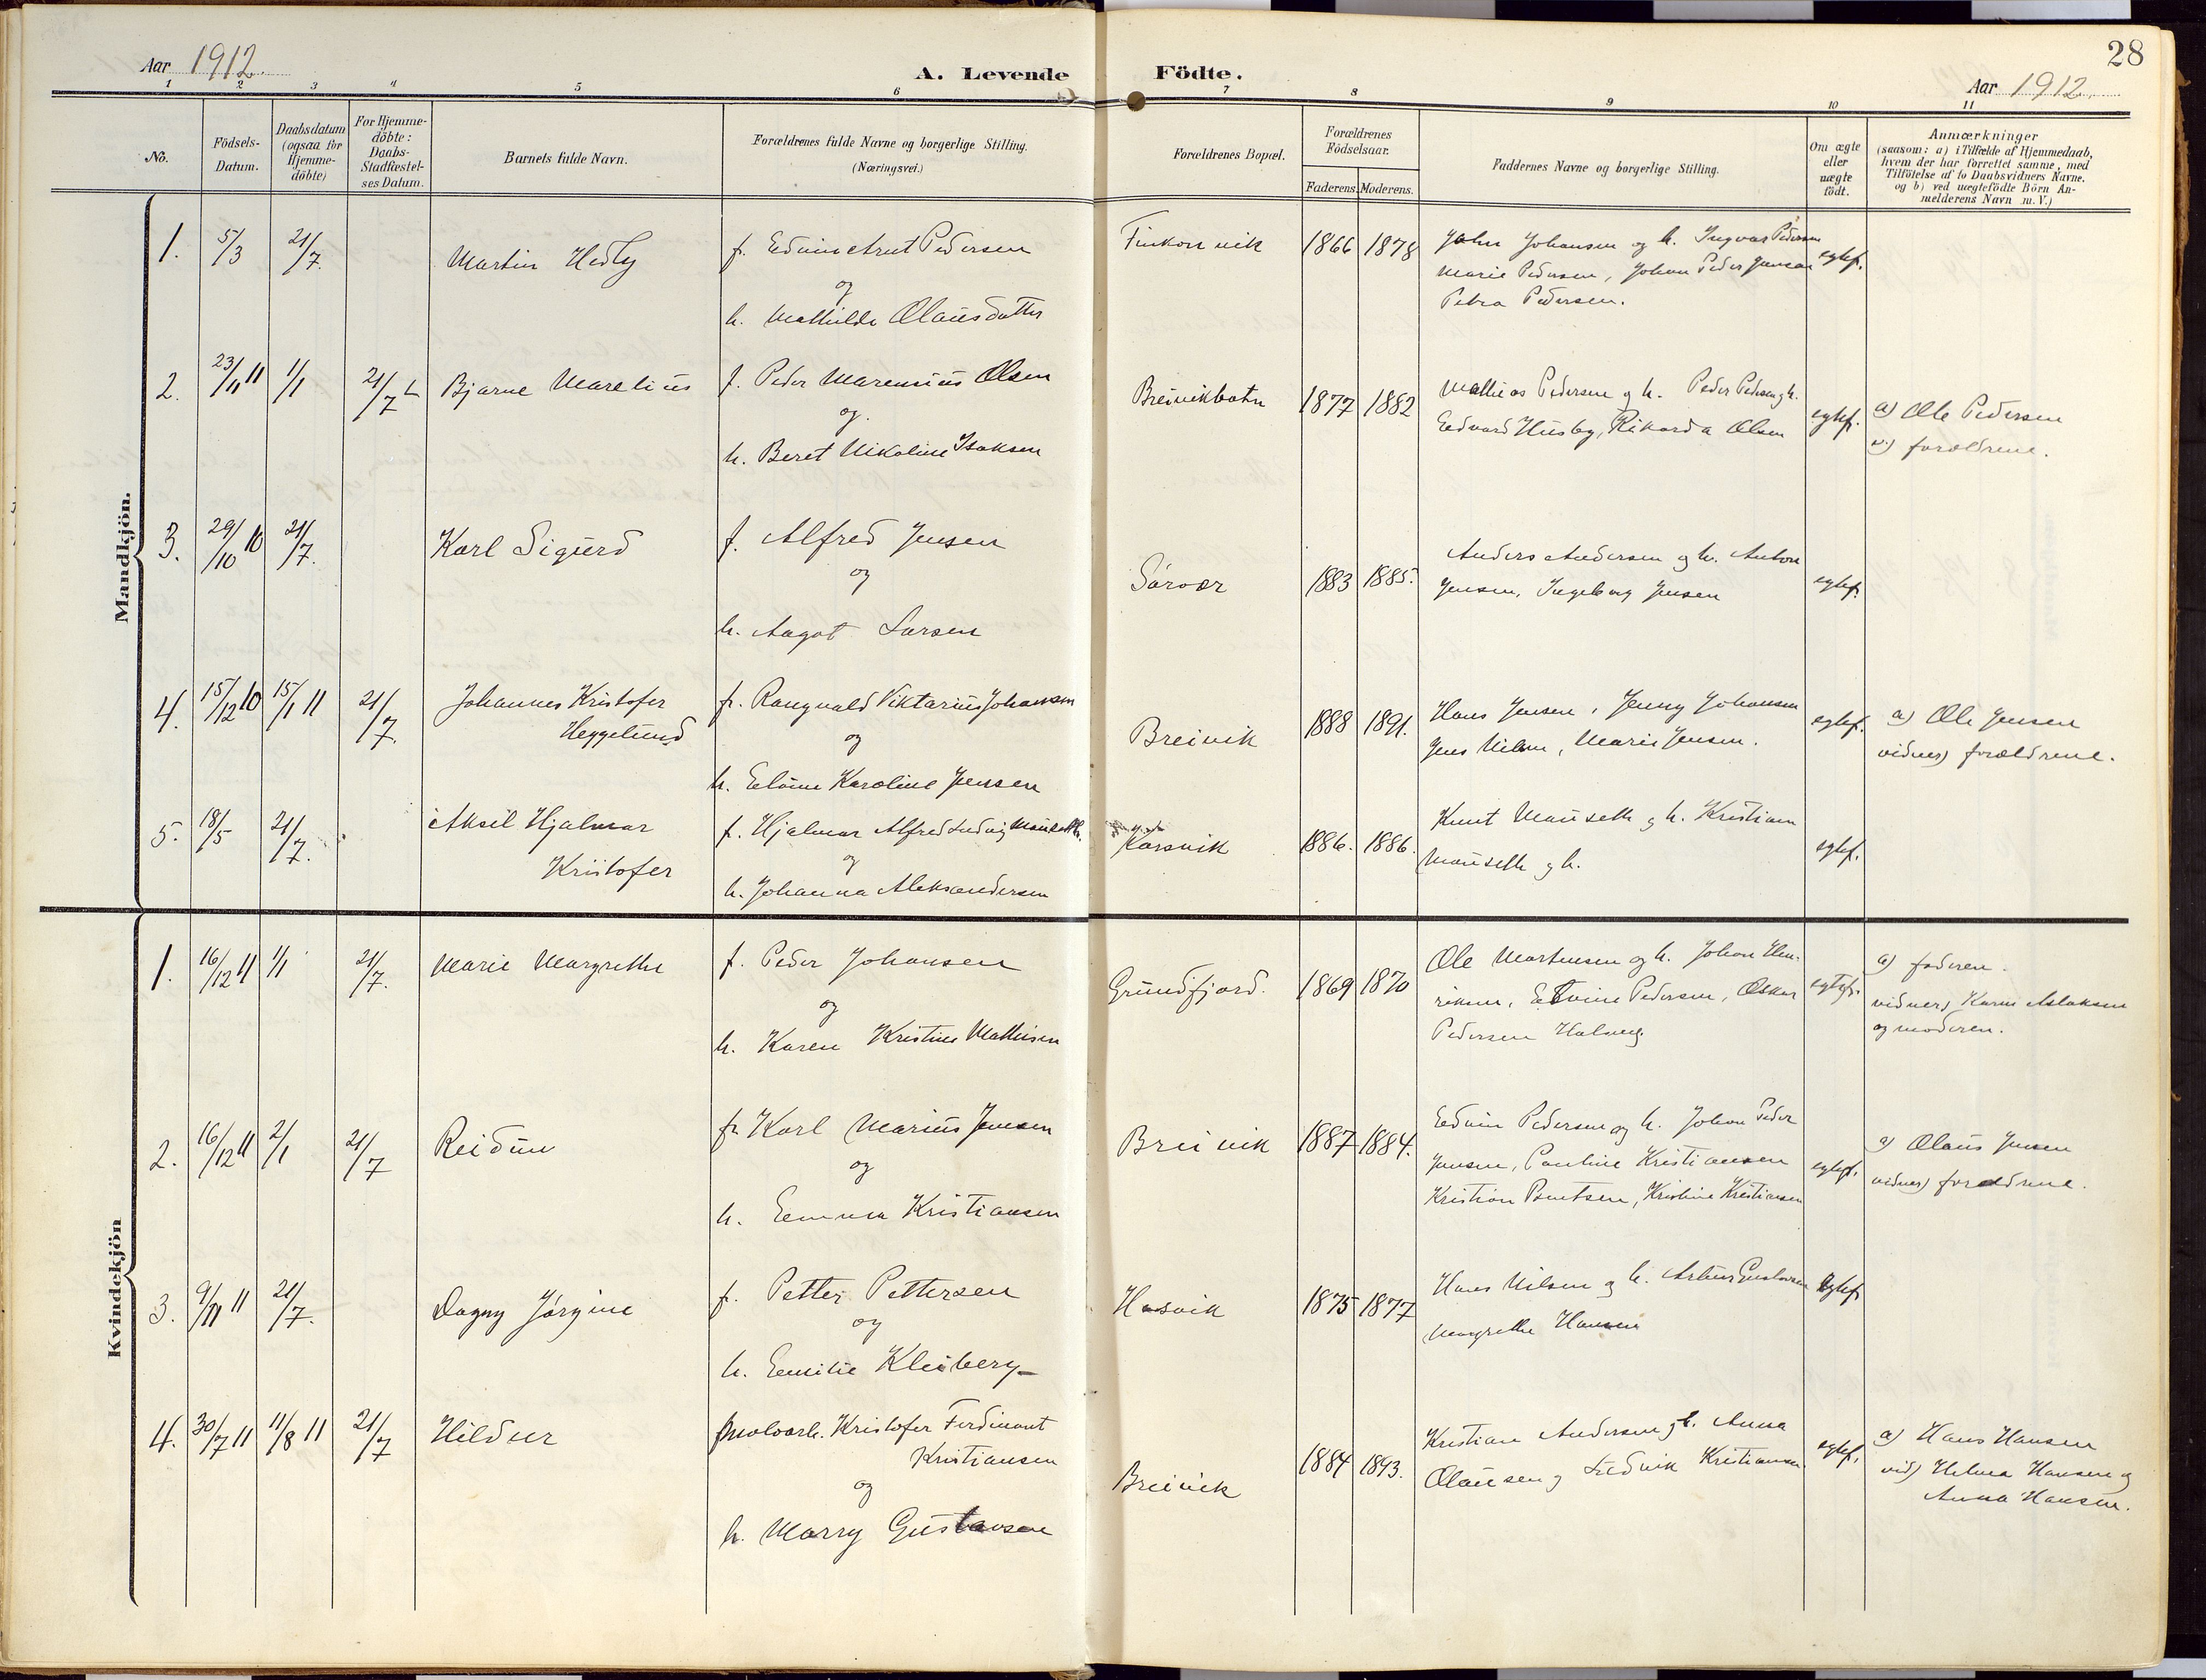 Aar 1912.
A. Levende Födte.
28
Aar 1912.
1 2 3 4 5 6 7 8 9 10 11
No.
Födsels-
Datum.
Daabsdatum
(ogsaa for
Hjemme-
döbte)
For Hjemme-
döbte:
Daabs-
Stadfæstel-
ses Datum.
Barnets fulde Navn.
Forældrenes fulde Navne og borgerlige Stilling.
(Næringsvei.)
Forældrenes Bopæl.
Forældrenes
Födselsaar.
Faderens. Moderens.
Faddernes Navne og borgerlige Stilling.
Om ægte
eller
uægte
födt.
Anmærkninger
(saasom: a) i Tilfælde af Hjemmedaab,
hvem der har forrettet samme, med
Tilföielse af to Daabsvidners Navne,
og b) ved uægtefödte Börn An-
melderens Navn m. V.)
Mandkjön.
1. 5/3 21/7. Martin Hedly
f. Edvin Arnt Pedersen
og
h. Mathilde Olausdatter
Finkonvik 1866 1878
John Johansen og h. Ingvar Pedersen
Marie Pedersen, Johan Peder Jensen
Petra Pedersen.
egtef.
2. 23/11 11 1/1 21/7 Bjarne Marelius
f. Peder Marensius Olsen
og
h. Beret Nikoline Isaksen
Breivikbotn 1877 1882
Mathias Pedersen og h. Peder Pedersen og h.
Edvard Husby, Rikarda Olsen
egtef.
a) Ole Pedersen
v.) forældrene.
3. 29/10 10 21/7. Karl Sigurd
f. Alfred Jensen
og
h. Aagot Larsen
Sörvær 1883 1885.
Anders Andersen og h. Anton
Jensen, Ingeborg Jensen
egtef.
4. 15/12 10 15/1 11 21/7. Johannes Kristofer
Heggelund
f. Rangvald Viktarius Johansen
og
h. Elvine Karoline Jensen
Breivik 1888 1891.
Hans Jensen, Jenny Johansen
Jens Nilsen, Marie Jensen.
egtef.
a) Ole Jensen
vidner) forældrene.
5. 18/5 21/7. Aksel Hjalmar
Kristofer
f. Hjalmar Alfred Ludvig Mauseth.
og
h. Johanna Aleksandersen
Kårsvik 1886. 1886.
Knut Mauseth og h. Kristian
Mauseth og h.
egtef.
Kvindekjön
1. 16/12 11 1/1 21/7. Marie Margrethe
f. Peder Johansen
og
h. Karen Kristine Mathisen
Grundfjord. 1869 1870
Ole Mortensen og h. Johan Hen-
riksen, Edvine Pedersen, Oskar
Pedersen Halveg.
egtef.
a) faderen.
vidner) Karen Aslaksen
og moderen.
2. 16/12 11 2/1 21/7 Reidun
f. Karl Marius Jensen
og
h. Emma Kristiansen
Breivik 1887 1884.
Edvin Pedersen og h. Johan Peder
Jensen, Pauline Kristiansen
Kristian Berntsen, Kristine Kristiansen
egtef.
a) Olaus Jensen
vidner) forældrene.
3. 9/11 11 21/7. Dagny Jörgine
f. Petter Pettersen
og
h. Emilie Kleiberg
Hasvik 1875 1877
Hans Nilsen og h. Artur Gustavsen
Margrethe Hansen
egtef.
4. 30/7 11 11/8 11 21/7 Hildur
Kristofer Ferdinant
Kristiansen
og
h. Marry Gustavsen
Breivik 1884 1893.
Kristian Andersen og h. Anna
Olausen og Fredrik Kristiansen.
egtef.
a) Hans Hansen
vid) Helma Hansen og
Anna Hansen.